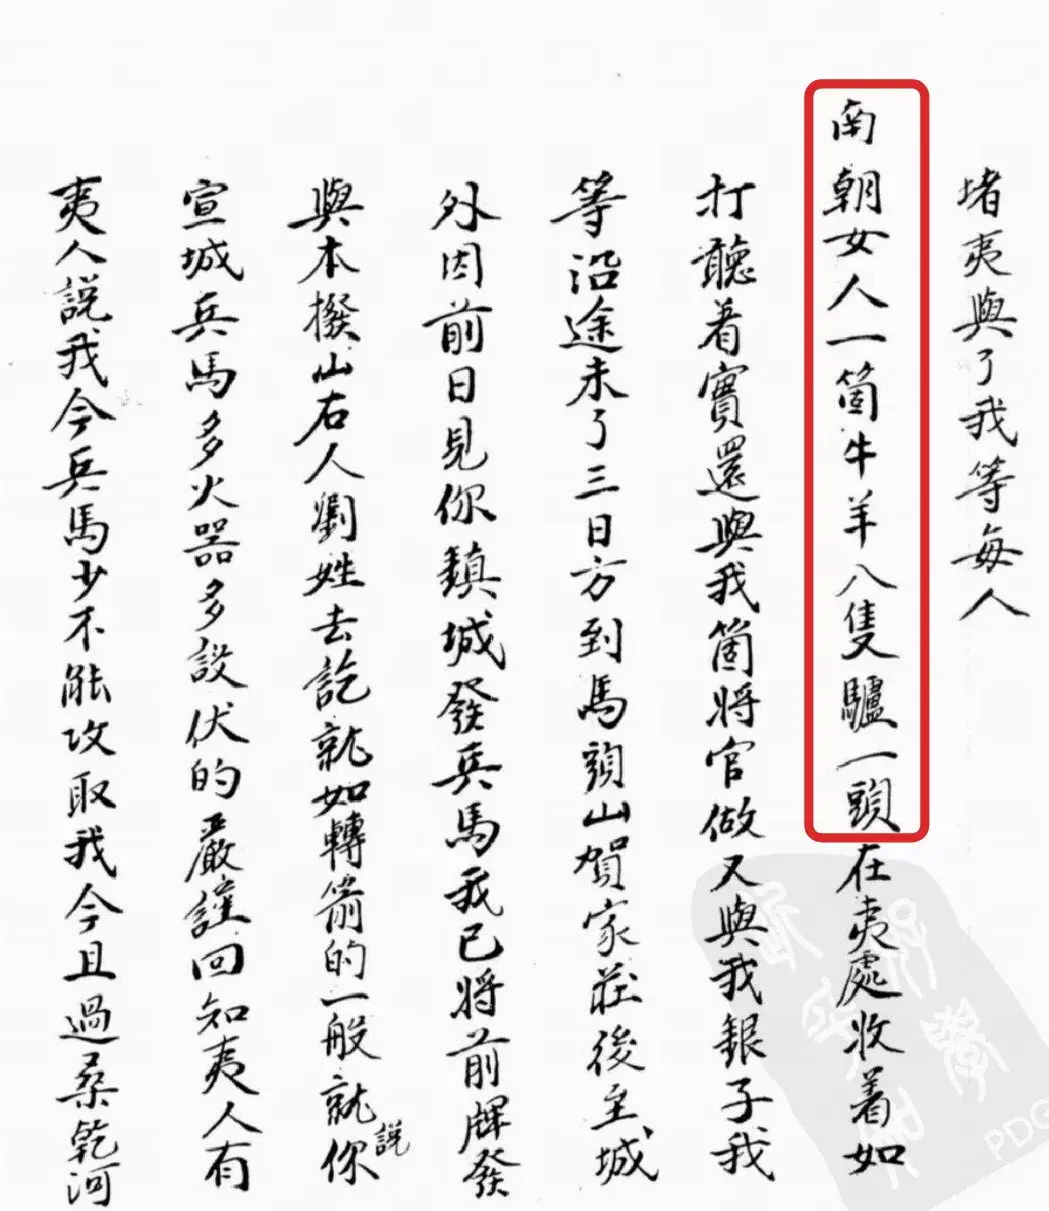 堵夷與了我等每人
南朝女人一箇牛羊八隻驢一頭在夷處收着如
打聽着實還與我箇將官做又與我銀子我
等沿途未了三日方到馬頭山賀家莊後至城
外因前日見你鎮城發兵馬我已將前牌發
與本撥山右人劉姓去訖就如轉箭的一般就你說
宣城兵馬多火器多設伏的嚴謹回知夷人有
夷人說我今兵馬少不能攻取我今且過桑乾河
PDG